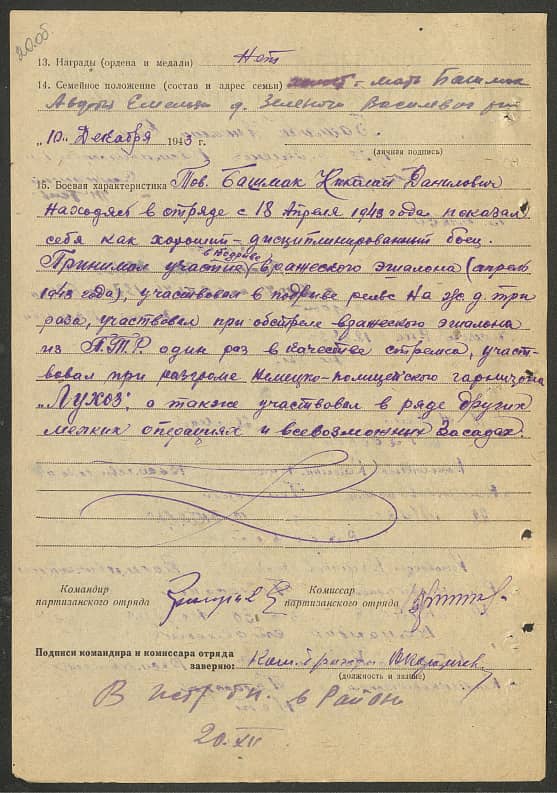 20.об.
13. Награды (ордена и медали) Нет
14. Семейное положение (состав и адрес семьи) мать Башмак
Авдотья д. Зеленочи
„10„ Декабря 1943 г.
(личная подпись)
15. Боевая характеристика Тов. Башмак Николай Данилович
находясь в отряде с 18 Апреля 1943 года показал
себя как хороший - дисциплинированный боец.
в подрыве
Принимал участие вражеского эшалона (апрель
1943 года), участвовал в подрыве рельс на ж/д. три
раза, участвовал при обстреле вражеского эшалона
из П.Т.Р. один раз в качестве стрелка, участ-
вовал при разгроме немецко-полицейского гарнизона
„Лухоз; а также участвовал в ряде других
мелких операциях и всевозможных засадах.
Командир
партизанского отряда
Комиссар
партизанского отряда
Подписи командира и комиссара отряда
заверяю:
(должность и звание)
в Район
20.XII